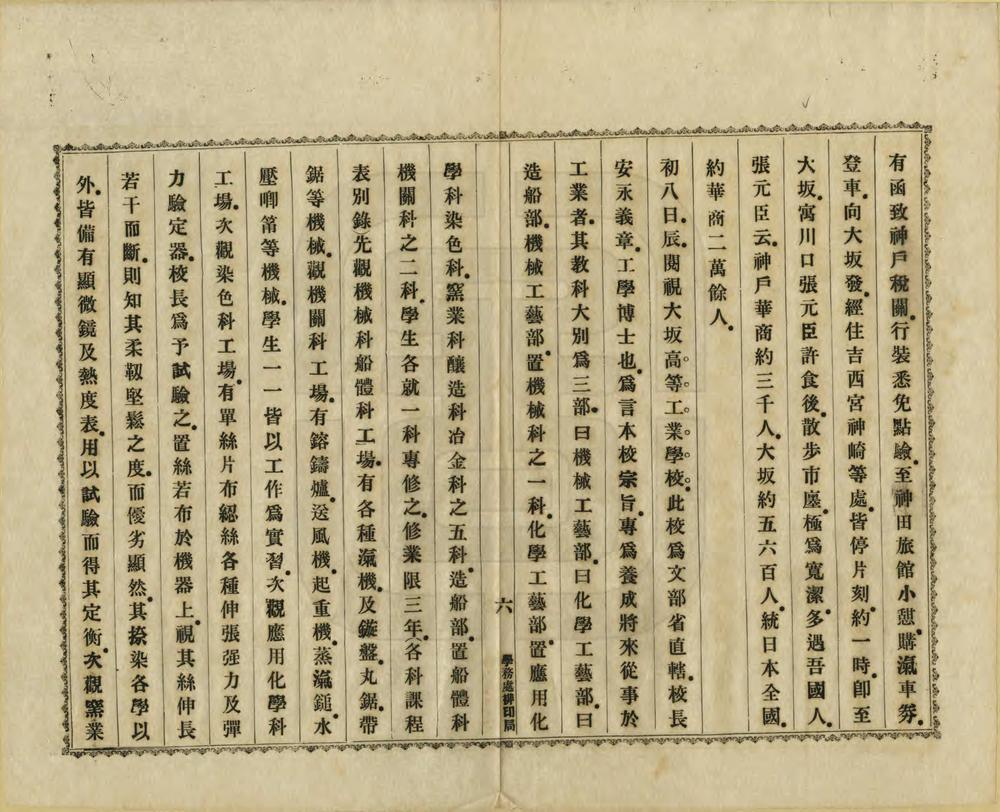 有函致神戶稅關。行裝悉免點驗。至神田旅館小憩。購滊車券。
登車。向大坂發。經住吉西宮神崎等處。皆停片刻。約一時。卽至
大坂。寓川口張元臣許食後。散步市廛。極爲寬潔。多遇吾國人。
張元臣云。神戶華商約三千人。大坂約五六百人。統日本全國。
約華商二萬餘人。
初八日。辰。閱視大坂高等工業學校。此校爲文部省直轄。校長
安永義章。工學博士也。爲言本校宗旨。專爲養成將來從事於
工業者。其教科大別爲三部。曰機械工藝部。曰化學工藝部。曰
造船部。機械工藝部。置機械科之一科。化學工藝部。置應用化
六
學務處排印局
學科染色科。窯業科釀造科冶金科之五科。造船部。置船體科
機關科之二科。學生各就一科專修之。修業限三年。(各科課程
表別錄先觀機械科船體科工場。有各種滊機。及鏇盤。丸鋸。帶
鋸等機械。觀機關科工場。有鎔鑄爐。送風機。起重機。蒸滊鎚。水
壓喞筩等機械。學生一一皆以工作爲實習。次觀應用化學科
工場。次觀染色科工場。有單絲片布綛絲各種伸張强力及彈
力驗定器。校長爲予試驗之。置絲若布於機器上。視其絲伸長
若干而斷。則知其柔靱堅鬆之度。而優劣顯然。其捺染各學以
外。皆備有顯微鏡及熱度表。用以試驗而得其定衡。次觀窯業